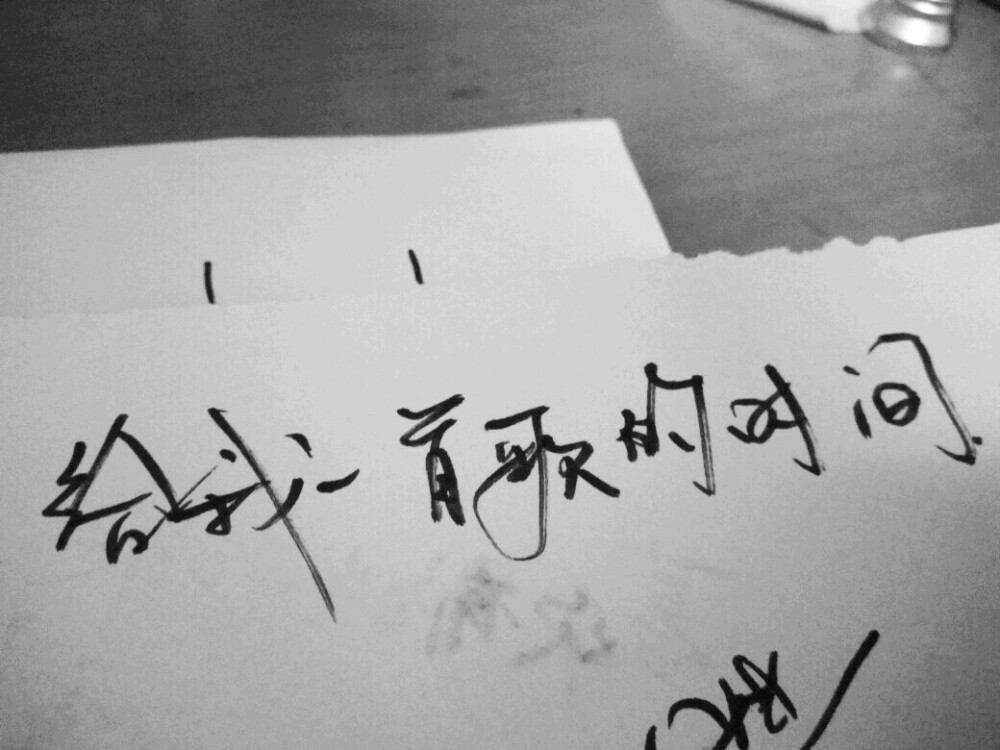 给我一首歌的时间